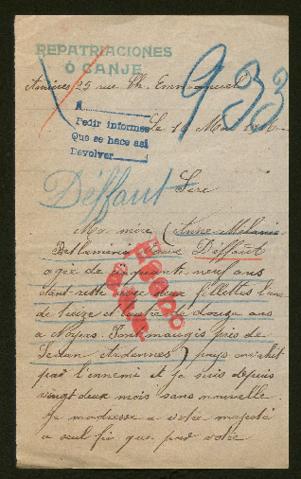 REPATRIACIONES
Ó CANJE
Asnières 25 rue Ch. Emmanuel
933
A
Pedir informes
Que se hace así
Devolver
Le 16 Mai
Déffaut
Sire
Ma mère (Anne Mélanie
Veuve Déffaut
agée de cinquante neuf ans
étant restée avec deux fillettes l'une
de treize et l'autre de douze ans
a Noyers Pontmaugis près de
Sedan Ardennes) pays envahit
par l'ennemi et je suis depuis
vingt deux mois sans nouvelle
Je m'adresse a votre majesté
a seul fin que par votre